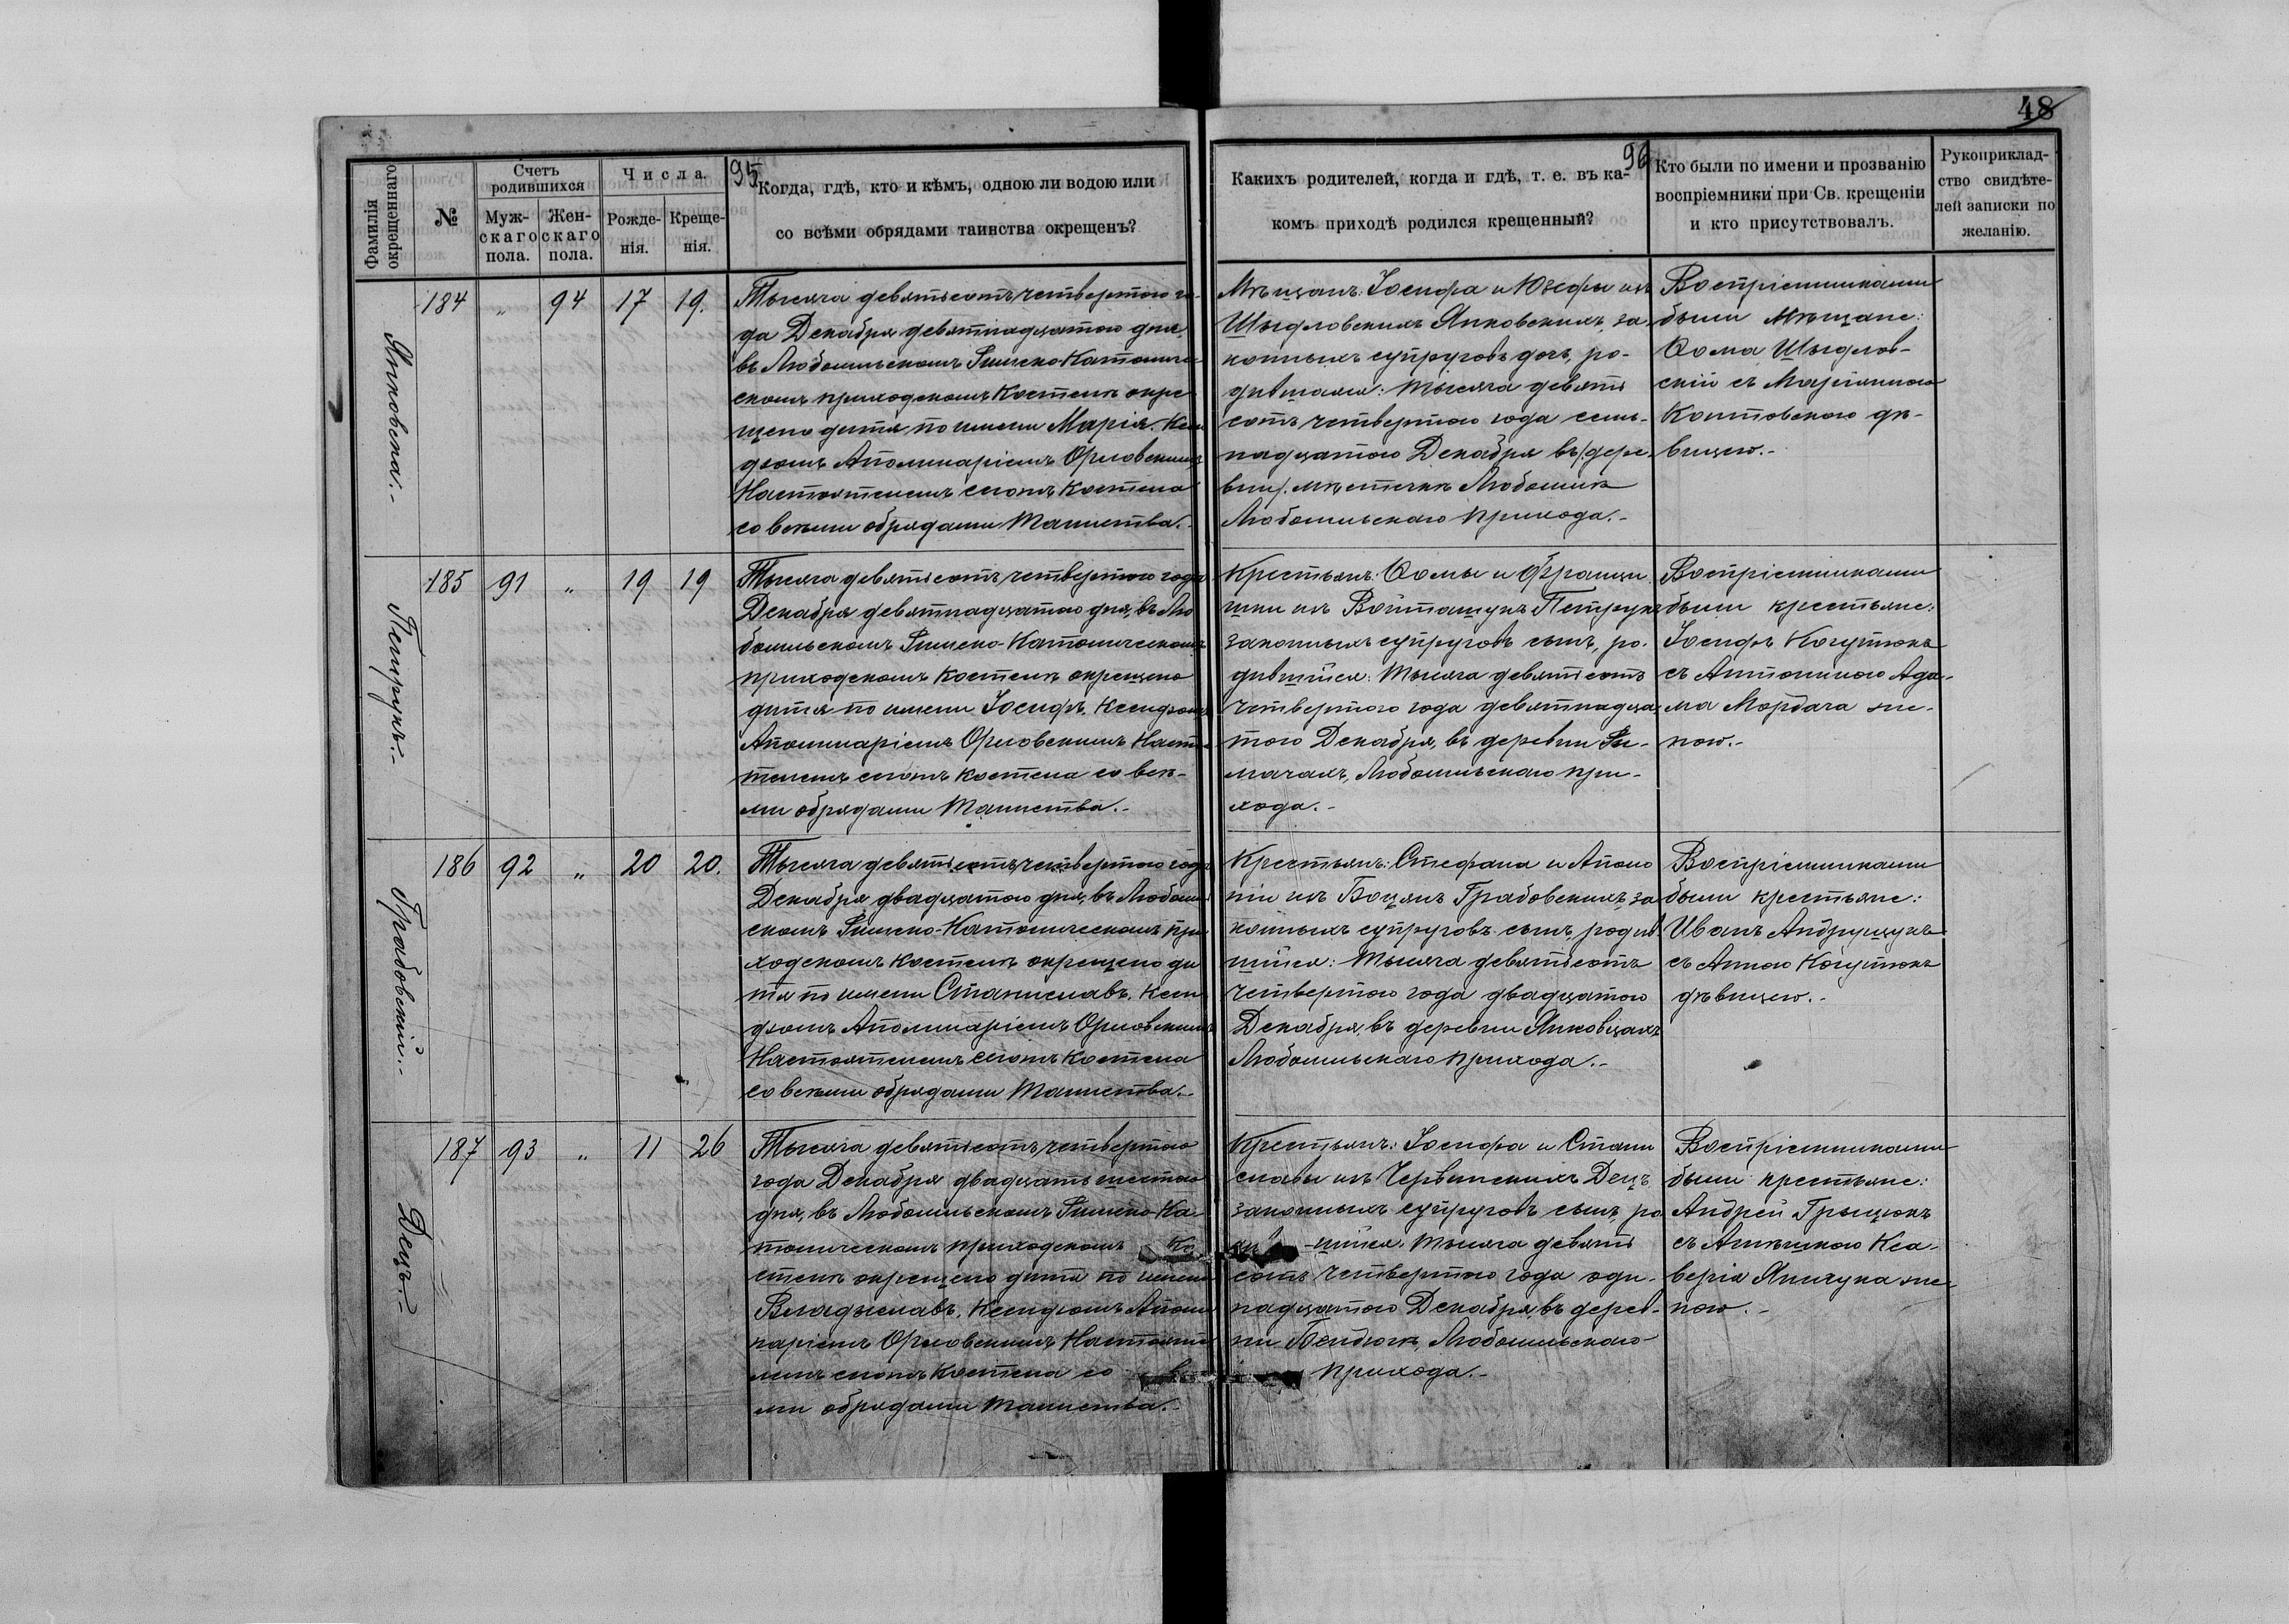 48
95
96
Фамилія окрещеннаго
№
Счетъ родившихся
Муж-
скаго
пола.
Жен-
скаго
пола.
Числа.
Рожде-
нія.
Креще-
нія.
Когда, гдѣ, кто и кѣмъ, одною ли водою или
со всѣми обрядами таинства окрещенъ?
Какихъ родителей, когда и гдѣ, т. е. въ ка-
комъ приходѣ родился крещенный?
Кто были по имени и прозванію
воспріемники при Св. крещеніи
и кто присутствовалъ.
Рукоприклад-
ство свидѣте-
лей записки по
желанію.
Янковска.-
184 " 94 17 19.
Тысяча девятьсотъ четвертого го-
да Декабря девятнадцатого дня,
въ Любомльскомъ Римско-Католиче-
скомъ приходскомъ Костелѣ окре-
щено дитя по имени Марія. Ксен-
дзомъ Аполинаріемъ Орловскимъ
Настоятелемъ сего Костела
со всѣми обрядами Таинства.-
Мѣщанъ: Іосифа и Юзефы изъ
Шыдловскихъ Янковскихъ, за-
конныхъ супруговъ дочь, ро-
дившаяся: тысяча девять
сотъ четвертого года сем-
надцатого Декабря въ /дере-
вни/. мѣстечкѣ Любомлѣ
Любомльскаго прихода.-
Воспріемниками
были Мѣщане:
Ѳома Шыдлов-
скій съ Маріанною
Колтовского дѣ-
вицею.-
Петрукъ.-
185 91 " 19 19
Тысяча девятьсотъ четвертого года
Декабря девятнадцатого дня, въ Лю-
бомльскомъ Римско-Католическомъ
приходскомъ Костелѣ окрещено
дитя по имени Іосифъ. Ксендзомъ
Аполинаріемъ Орловскимъ Настоя-
телемъ сего Костела со всѣ-
ми обрядами Таинства.-
Крестьянъ: Ѳомы и Францы-
шки изъ Войташукъ Петрукъ
законныхъ супруговъ сынъ, ро-
дившійся: тысяча девятьсотъ
четвертого года девятнадца-
того Декабря, въ деревни Ри-
мачахъ, Любомльскаго при-
хода.-
Воспріемниками
были крестьяне:
Іосифъ Когутюкъ
съ Антониною Ада-
ма Мордача же-
ною.-
Грабовскій.-
186 92 " 20 20.
Тысяча девятьсотъ четвертого года
Декабря двадцатого дня, въ Любомль-
скомъ Римско-Католическомъ при-
ходскомъ Костелѣ окрещено ди-
тя по имени Станиславъ. Ксен-
дзомъ Аполинаріемъ Орловскимъ
Настоятелемъ сего Костела
со всѣми обрядами Таинства.-
Крестьянъ: Стефана и Аполо-
ніи изъ Боцянъ Грабовскихъ, за-
конныхъ супруговъ сынъ, родив-
шійся: тысяча девятьсотъ
четвертого года двадцатого
Декабря, въ деревни Янковцахъ
Любомльскаго прихода.-
Воспріемниками
были крестьяне:
Иванъ Андрущукъ
съ Анною Когутюкъ
дѣвицею.-
Децъ.-
187 93 " 11 26
Тысяча девятьсотъ четвертого
года Декабря двадцать шестого
дня, въ Любомльскомъ Римско-Ка-
толическомъ приходскомъ Ко-
стелѣ окрещено дитя по имени
Владыславъ. Ксендзомъ Аполи-
наріемъ Орловскимъ Настояте-
лемъ сего Костела со
ми обрядами Таинства.-
Крестьянъ: Іосифа и Стани-
славы изъ Червинскихъ Децъ
законныхъ супруговъ сынъ, ро-
шійся. тысяча девять
сотъ четвертого года оди-
надцатого Декабря, въ дерев-
ни Бендюгѣ, Любомльскаго
прихода.-
Воспріемниками
были крестьяне:
Андрей Грыцюкъ
съ Агнѣшкою Кса-
верія Янчука же-
ною.-